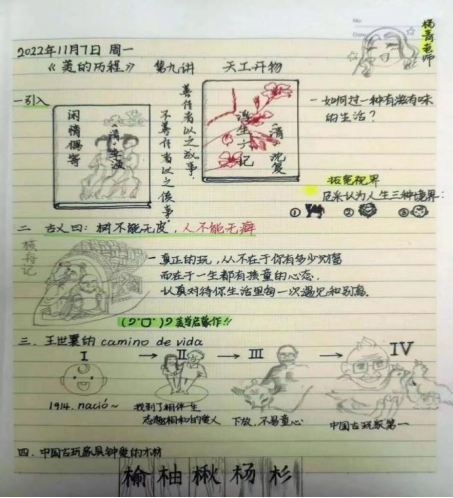 杨青老师
2022年11月7日 周一
《美的历程》 第九讲 天工开物
一 引入
闲情偶寄
(清)李渔
善住者以之故事,
不善住者以之俊事.
浮生六记
(清)沈复
- 如何过一种有滋有味的生活?
拓宽视界
尼采认为人生三种境界:
① ② ③
二 古人曰: 树不能无皮, 人不能无癖
核舟记
- 真正的玩,从不在于你有多少财富
而在于一生都有孩童的心态.
认真对待你生活里每一次遇见和别离.
美学启蒙作!!
三. 王世襄的 camino de vida
I → II → III → IV
1914. nació~
找到了相伴一生
志趣相和的爱人
下放, 不易童心
中国古玩家第一
四. 中国古玩家具钟爱的木材
榆 柚 楸 杨 杉